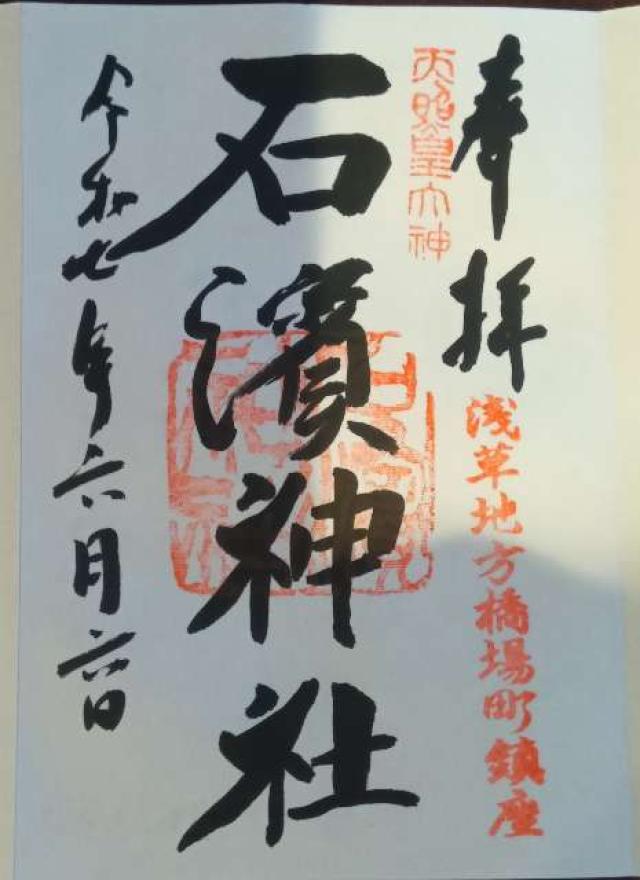 奉拝
天照皇大神
淺草地方橋場町鎮座
石濱神社
令和七年六月六日